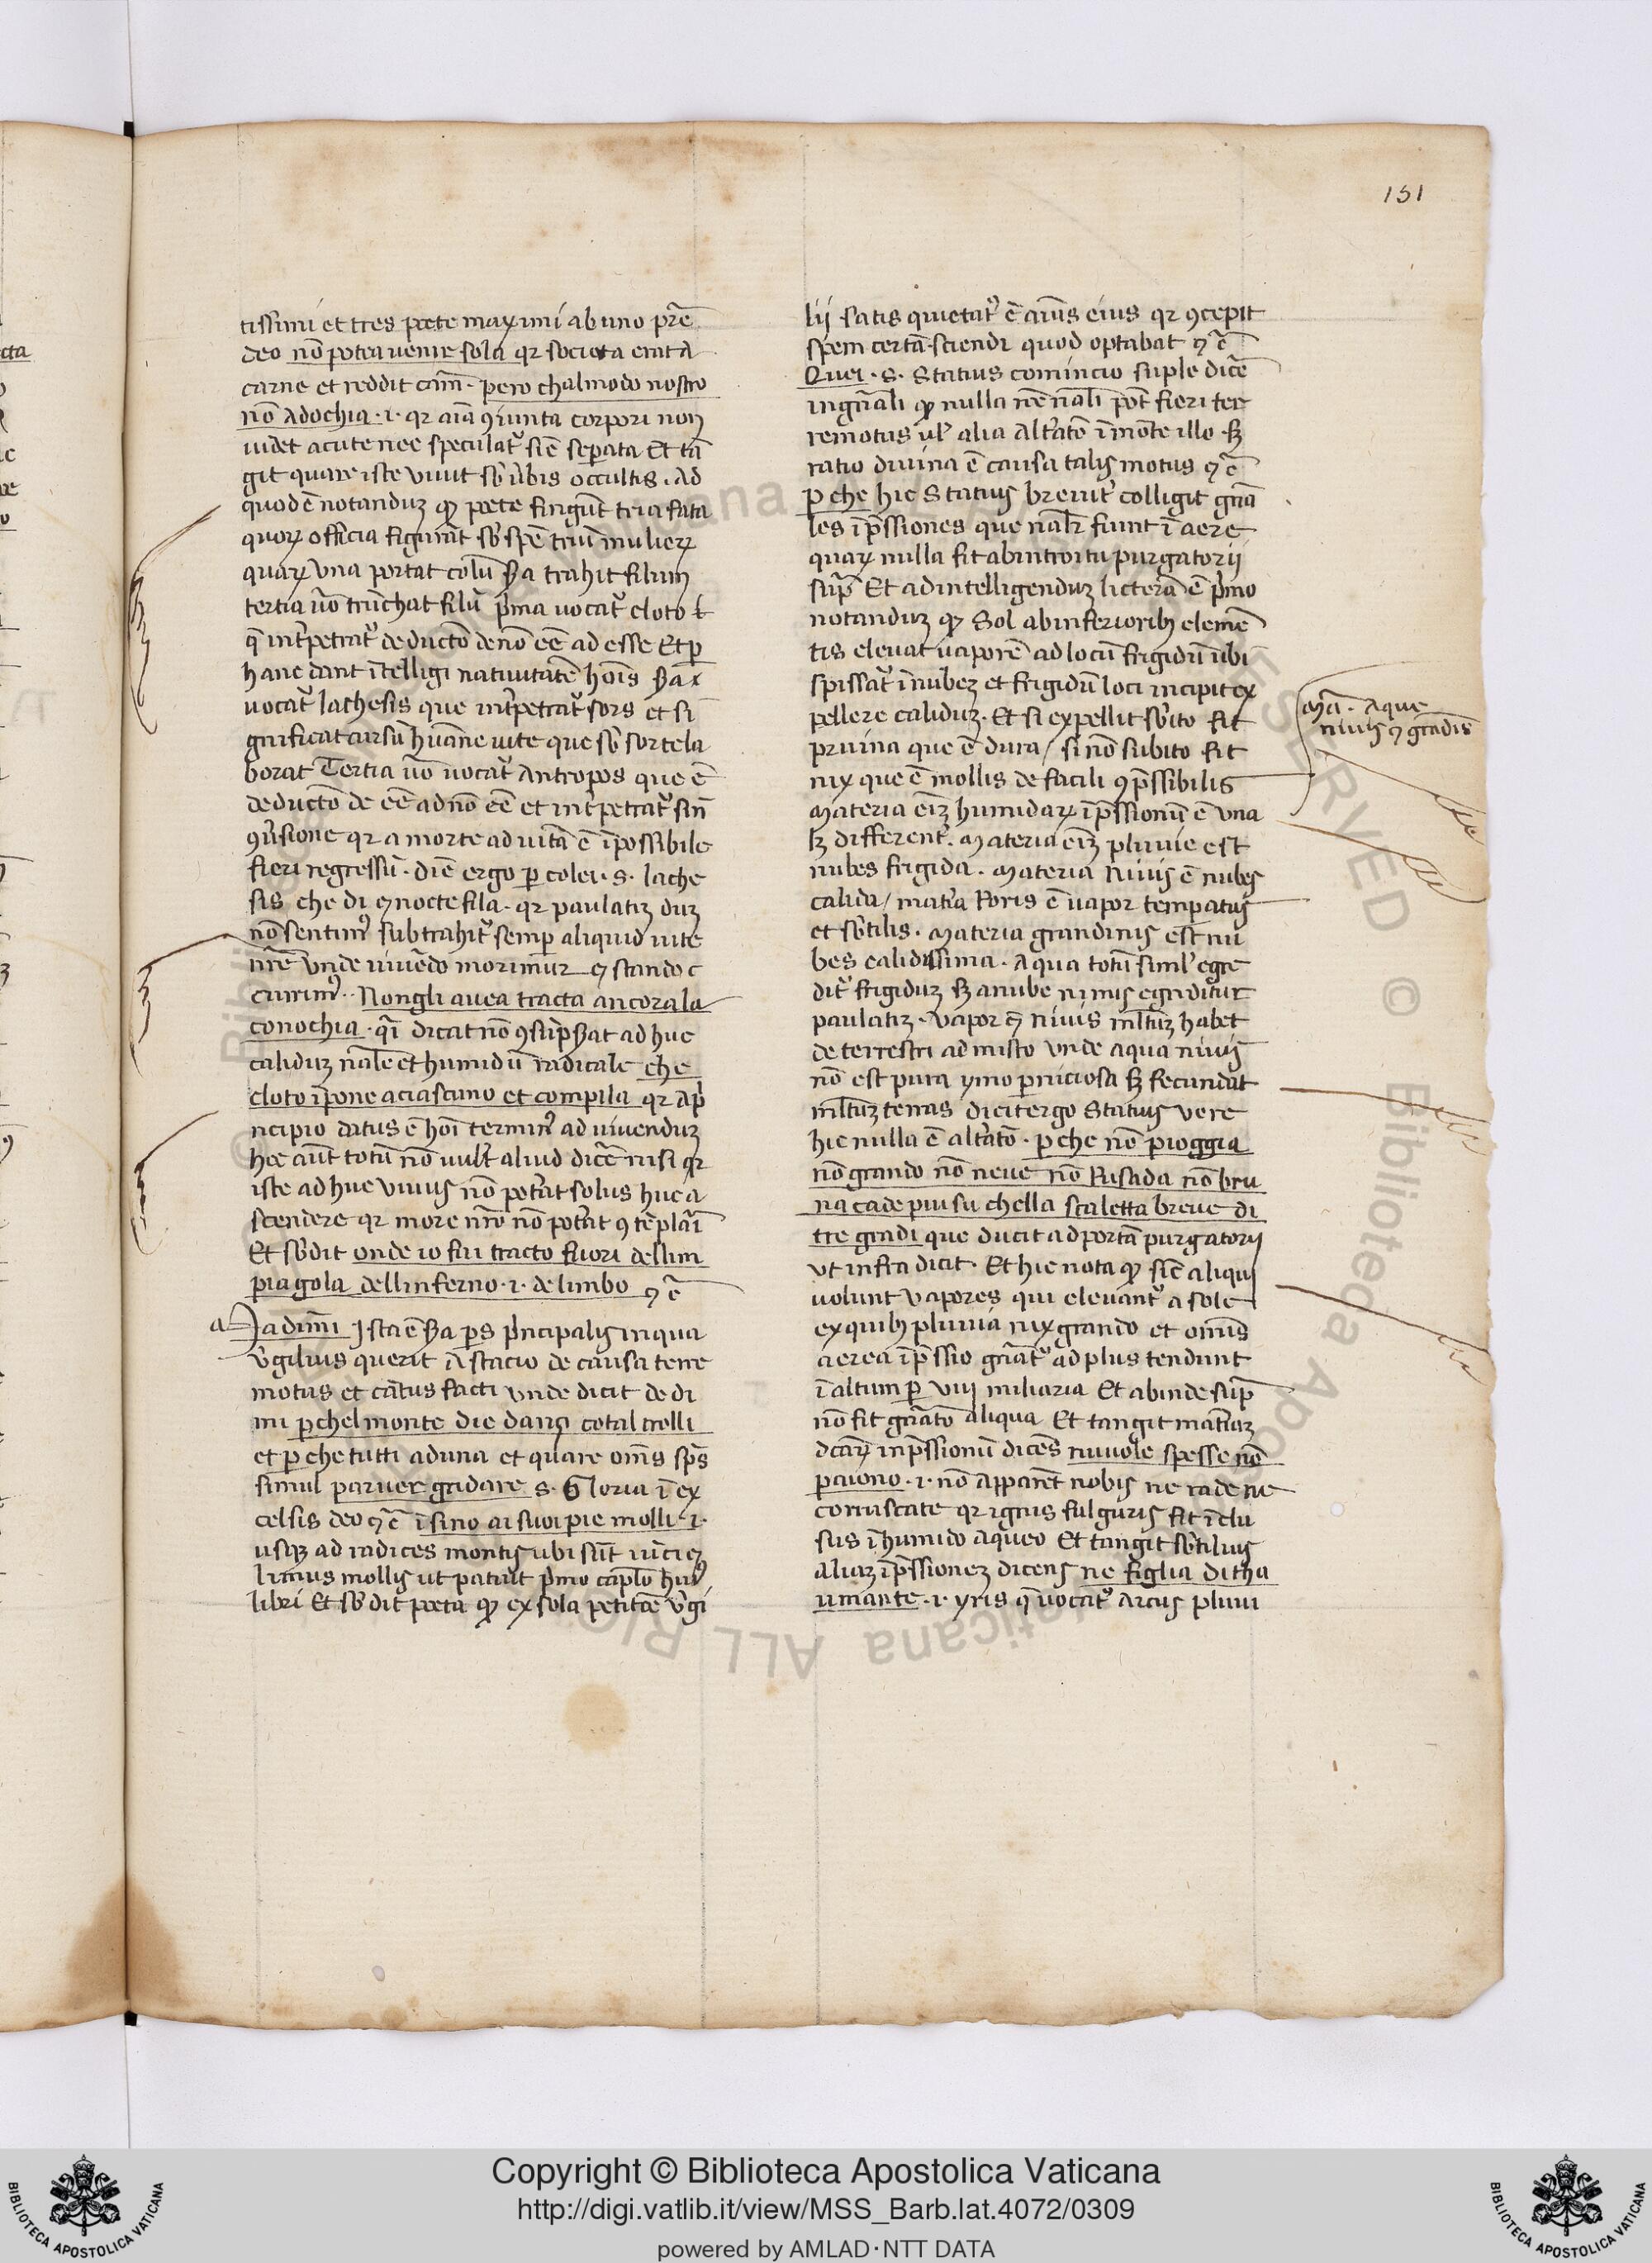 151
tissimi et tres poete maximi ab uno pr̄e
deo nō potea uenir sola qr sociata erat a
carne et reddit cām · pero chal modo nostro
nō adochia · i · qr aīa ɔiunta corpori non
uidet acute nec speculat᷑ sic̄ separata Et tā
git quare iste viuit sb̄ ūbis occultis · Ad
quod ē notanduꝫ qꝫ poete fingūt tria fata
quoꝝ officia figurāt sb̄ spē triū mulieꝝ
quaꝝ vna portat colū 2a trahit filum
tertia ūo trūchat filū p̄ma uocat᷑ cloto
q̄ int̄petrat᷑ deductō de nō eē ad esse Et ꝑ
hanc dant ītelligi natiuitatē hoīs 2a
uocat᷑ lachesis que int̄petrat᷑ sors et si
gnificat cursū hūane uite que sb̄ sorte la
borat Tertia ūo uocat᷑ Antropos que ē
deductō de eē ad nō eē et int̄petrat᷑ sin̄
ɔūsione qr a morte ad uitā ē īpossibile
fieri regressū · Dic̄ ergo ꝑ colei · s · lache
sis che di ⁊ nocte fila · qr paulatiꝫ duꝫ
nō sentim᷒ subtrahit᷑ semꝑ aliquid uite
nr̄e vnde uiuēdo morimur ⁊ stando c
currim᷒ · Non gli auea tracta ancora la
conochia · q̄i dicat nō ɔsūp2at ad huc
caliduꝫ nāle et humidū radicale che
cloto īpone a ciascuno et compila qr a p̄
ncipio datus ē hoī termin᷒ ad uiuenduꝫ
hec aūt totū nō uult aliud dic̄e nisi qr
iste ad huc viuus nō pot̄at solus huc a
scendere qr more nr̄o nō pot̄at ɔtēplari
Et sb̄dit onde io fui tracto fuori dellim
pia gola dellinferno · i · de limbo ⁊c̄
a
Ma dimmi Ista ē 2a ps p̄ncipalis in qua
v̄gilius querit A stacio de causa terre
motus et cātus facti vnde dicit de di
mi ꝑchel monte die danzi cotal crolli
et ꝑ che tutti aduna et quare om̄s sp̄s
simul paruer gridare s · Gloria ī ex
celsis deo ⁊c̄ īsino ai suoi pie molli · i ·
usqꝫ ad radices montis ubi sūt iūci ⁊
limus mollis ut patuit p̄mo cap̄lo hui᷒
libri Et sb̄dit poeta qꝫ ex sola petitōe v̄gi
lii satis quietat᷑ ē aīus eius qr ɔcepit
spem certā sciendi quod optabat ⁊c̄
Quei · s · Statius comincio suple dic̄e
in gn̄ali qꝫ nulla nc̄ nāli pōt fieri ter
remotus ul̄ alia alt̄atō ī monte illo · sꝫ
ratio diuina ē causa talis motus ⁊c̄
ꝑ che hic Statius breuit᷑ colligit gn̄a
les īp̄ssiones que nālr̄ fiunt ī aere
quaꝝ nulla fit ab introitu purgatorii
sup̄ Et ad intelligenduꝫ licterā ē p̄mo
notanduꝫ qꝫ Sol ab inferioribꝫ elemē
tis eleuat uaporē ad locū frigidū ubi
spissat᷑ ī nubeꝫ et frigidū loci incipit ex
pellere caliduꝫ · Et si expellit sb̄ito fit
pruina que ē dura / si nō subito fit
nix que ē mollis de facili ɔp̄ssibilis
Materia eīꝫ humidaꝝ īp̄ssionū ē vna
sꝫ different᷑ · Materia eīꝫ pluuie est
nubes frigida · Materia Niuis ē nubes
calida / mat̄ia Roris ē uapor temꝑatus
et sb̄tilis · Materia grandinis est nu
bes calidissima · Aqua totū siml̄ egre
dit᷑ frigiduꝫ sꝫ a nube niuis egreditur
paulatiꝫ · vapor ⁊ Niuis ml̄tuꝫ habet
de terrestri admisto vnde aqua niuis
nō est pura ymo ꝑniciosa sꝫ fecundat
ml̄tuꝫ terras Dicit ergo Statius vere
hic nulla ē alt̄atō · ꝑ che nō pioggia
nō grando nō neue nō Rusada nō bru
na cade piu su chella scaletta breue di
tre gradi que ducit ad portā purgatorii
vt infra dicit · Et hic nota qꝫ sic̄ aliqui
uolunt vapores qui eleuant᷑ a sole
ex quibꝫ pluuia nix grando et om̄is
aerea īp̄ssio gn̄at᷑ ad plus tendunt
ī altum ꝑ viij miliaria Et abinde sup̄
nō fit gn̄atō aliqua Et tangit mat̄iaꝫ
dc̄aꝝ inp̄ssionū dicēs nuuole spesse nō
paiono · i · nō apparēt nobis ne rade ne
coruscate qr ignis fulguris fit īclu
sus ī humido aqueo Et tangit sb̄tilius
aliaꝫ īp̄ssioneꝫ dicens ne figlia di tha
umante · i · yris q̄ uocat᷑ arcus pluui
Mā · Aque
niuis ⁊ grādīs
Copyright © Biblioteca Apostolica Vaticana
http://digi.vatlib.it/view/MSS_Barb.lat.4072/0309
powered by AMLAD·NTT DATA
BIBLIOTECA APOSTOLICA VATICANA
BIBLIOTECA APOSTOLICA VATICANA